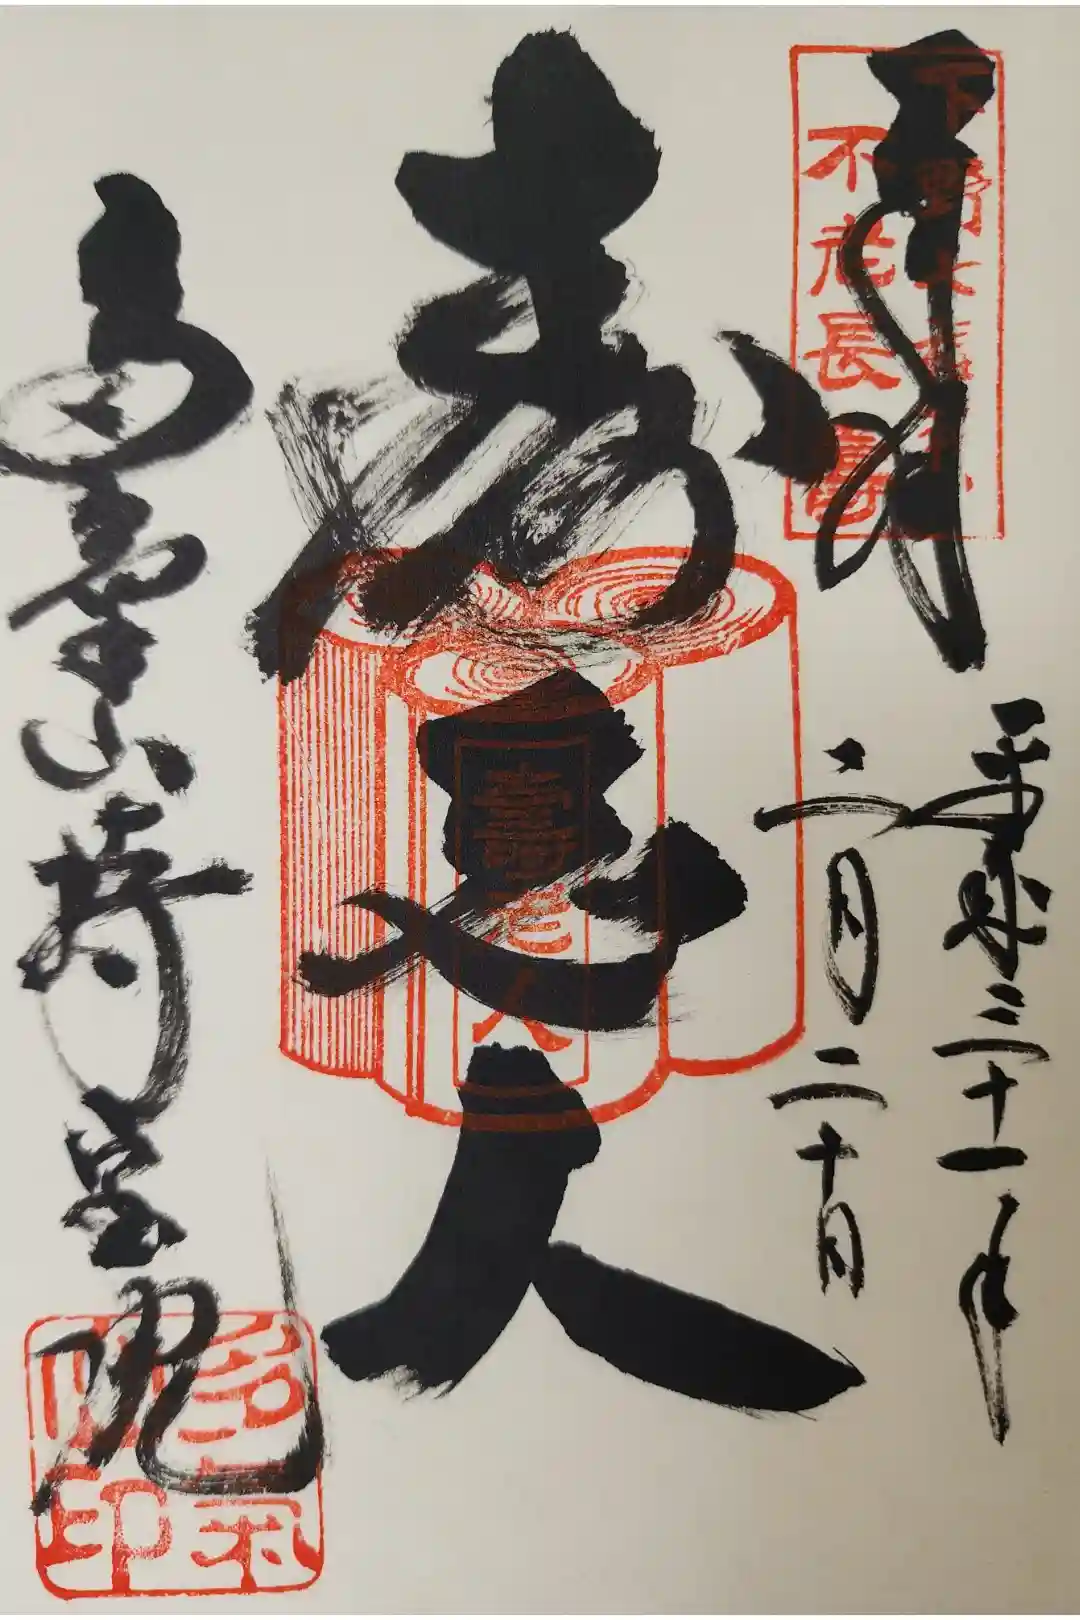 奉拝
下野七福神
不老長壽
平成三十一年
二月二十日
寿老人
壽老人
多氣山持宝院
多氣山印